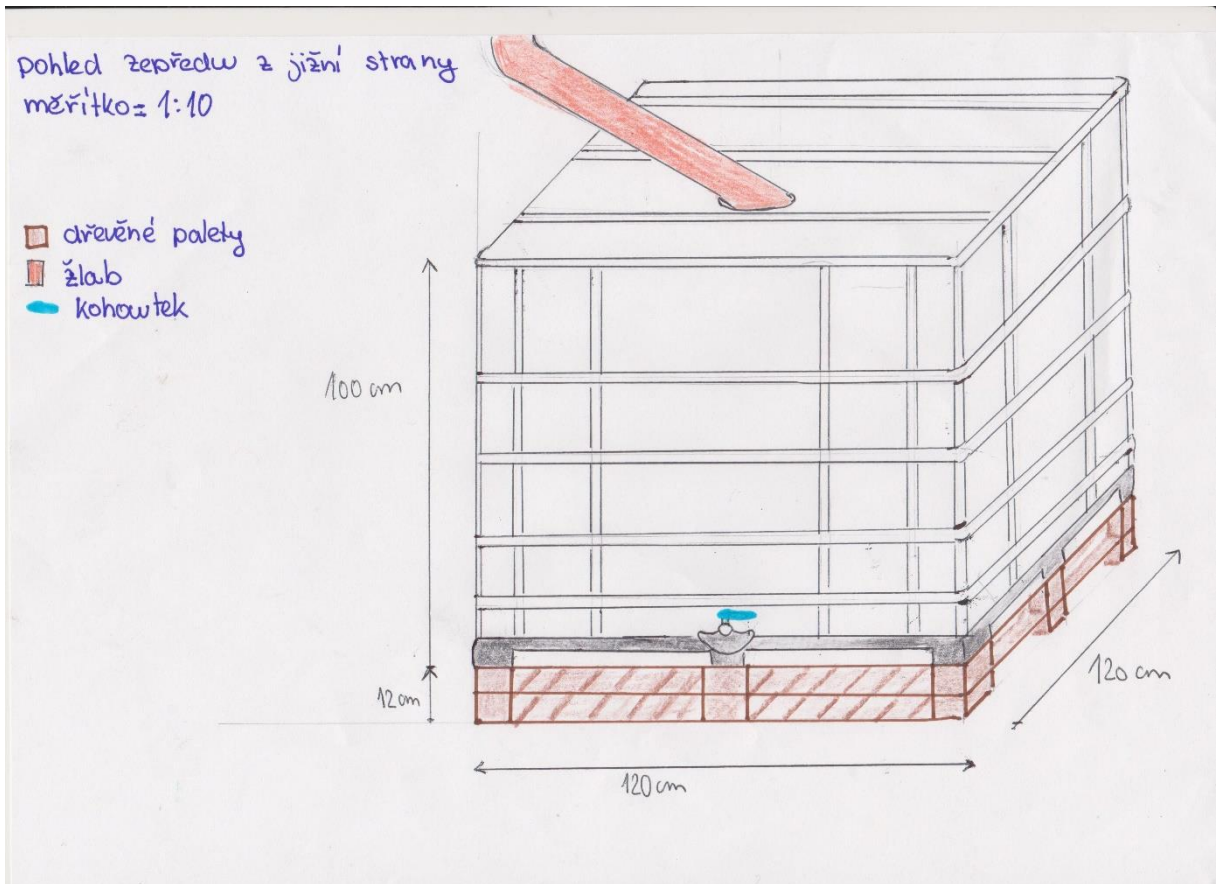 pohled zepředu z jižní strany
měřítko= 1:10
dřevěné palety
žlab
kohoutek
100 cm
12cm
120 cm
120 cm